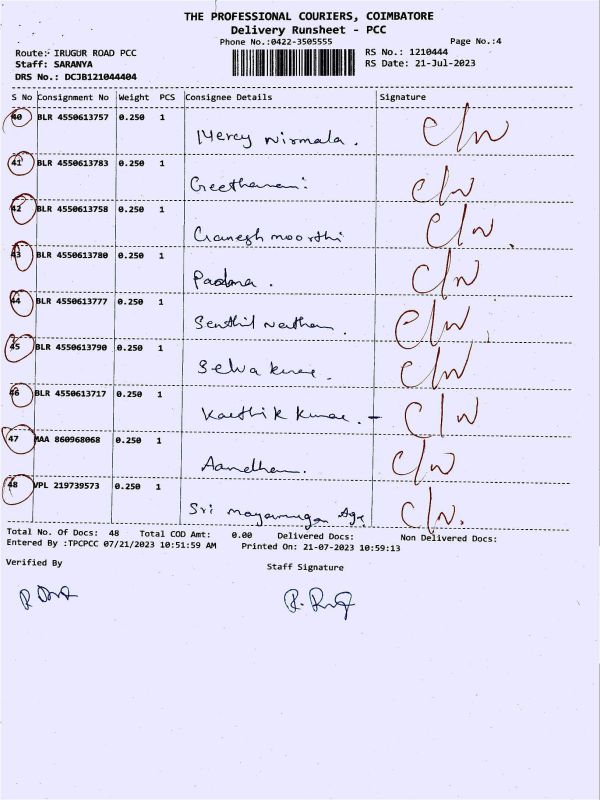 THE PROFESSIONAL COURIERS, COIMBATORE
Delivery Runsheet - PCC
Phone No.:0422-3505555 Page No.:4
Route: IRUGUR ROAD PCC RS No.: 1210444
Staff: SARANYA RS Date: 21-Jul-2023
DRS No.: DCJB121044404
S No Consignment No Weight PCS Consignee Details Signature
40 BLR 4550613757 0.250 1
Mercy Nirmala. C/N
41 BLR 4550613783 0.250 1
C/N
42 BLR 4550613758 0.250 1
Ganesh moorthi C/N
43 BLR 4550613780 0.250 1
Padma. C/N
44 BLR 4550613777 0.250 1
Senthil C/N
45 BLR 4550613790 0.250 1
Selva kumar. C/N
46 BLR 4550613717 0.250 1
Karthik kumar. - C/N
47 MAA 860968068 0.250 1
C/N
48 VPL 219739573 0.250 1
Sri C/N.
Total No. Of Docs: 48 Total COD Amt: 0.00 Delivered Docs: Non Delivered Docs:
Entered By :TPCPCC 07/21/2023 10:51:59 AM Printed On: 21-07-2023 10:59:13
Verified By Staff Signature